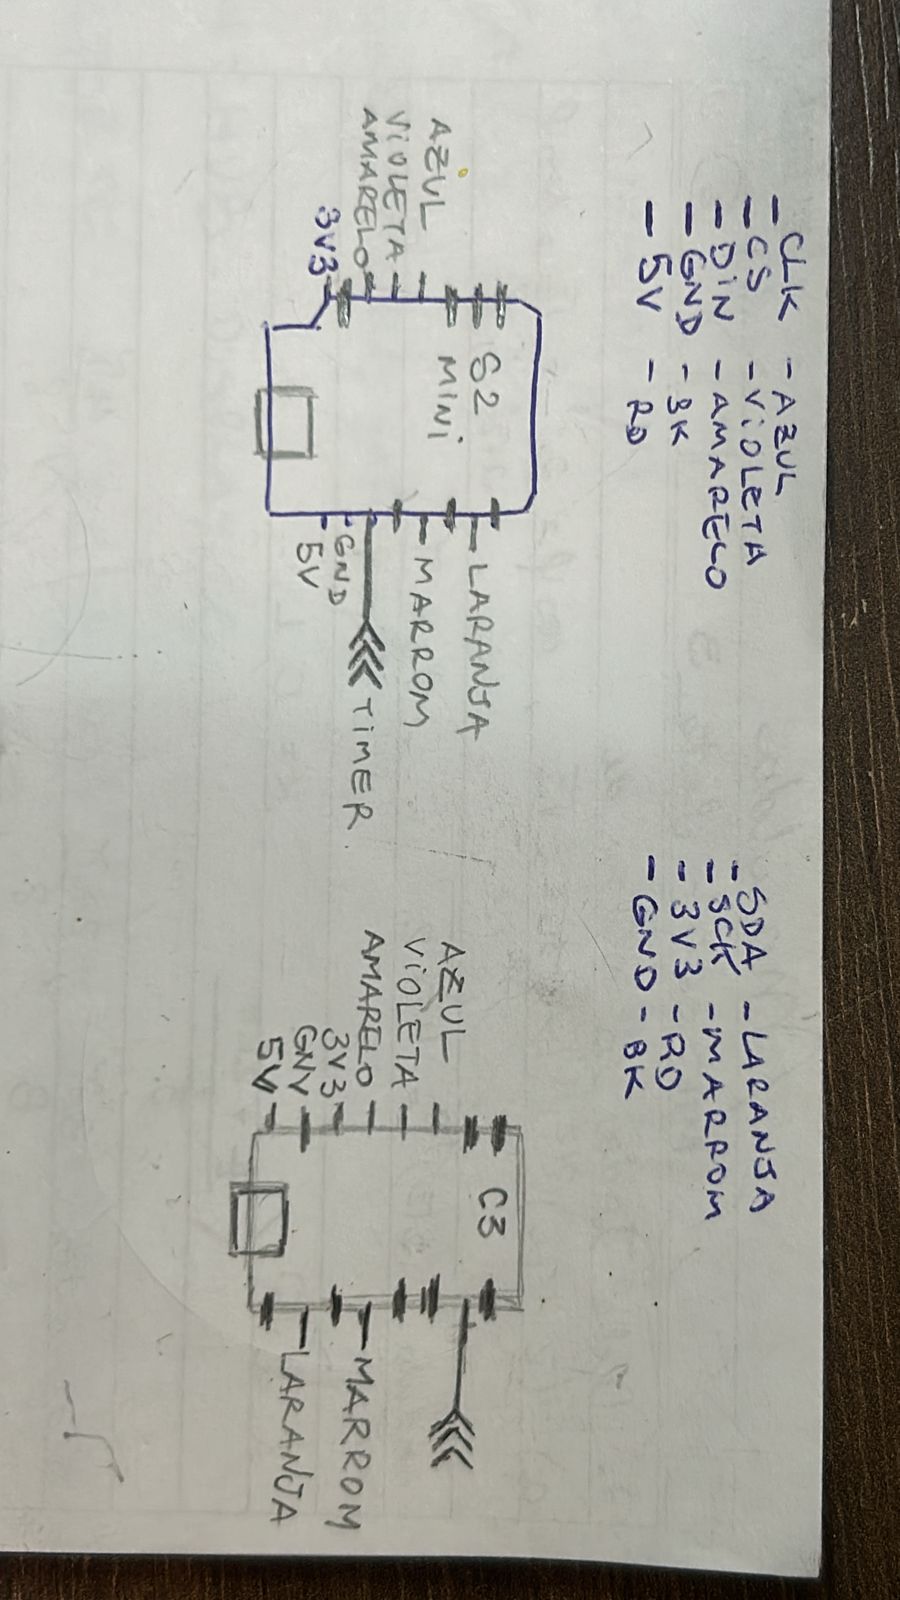 CLK - AZUL
CS - VIOLETA
DIN - AMARELO
GND - BK
5V - RD
SDA - LARANJA
SCK - MARROM
3V3 - RD
GND - BK
S2
MINI
AZUL
VIOLETA
AMARELO
3V3
LARANJA
MARROM
TIMER
GND
5V
C3
AZUL
VIOLETA
AMARELO
3V3
GNV
5V
MARROM
LARANJA